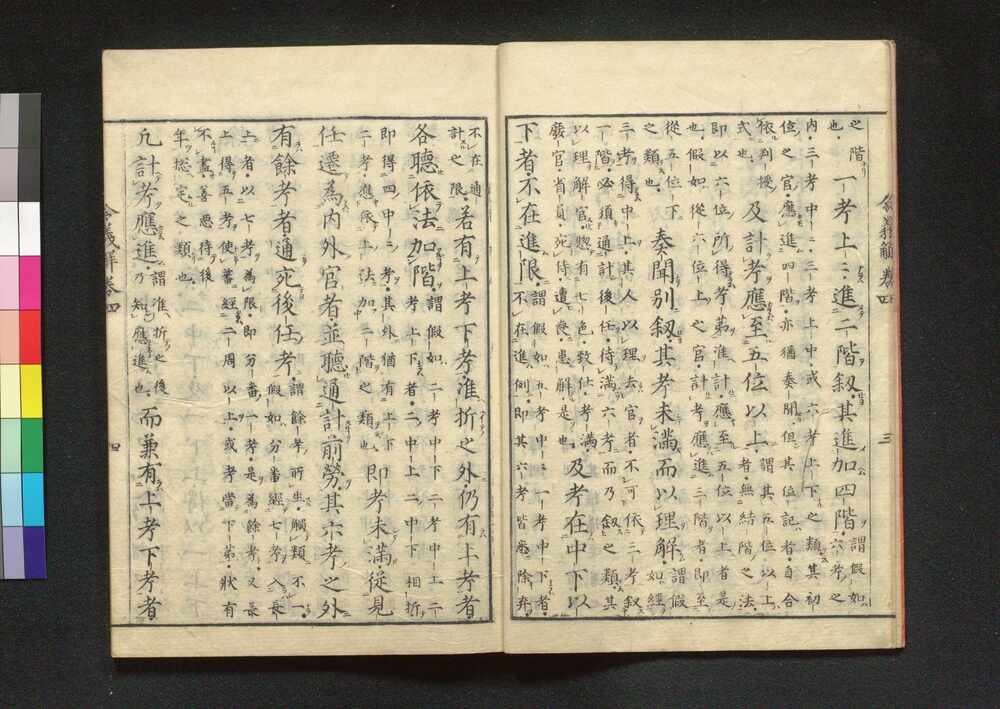 令義解 卷四 三
之階
也
一考上々進二階叙其進加四階
謂假如
六考之
内三考中上三考上中或六考上下之類其初
位之官應進四階亦猶奏聞但其位記者自合
依判授
式也
及計考應至五位以上
謂其五位以上
者無結階之法
即以六位所得考第准計應至五位以上者是
也假如從六位上之官計考應進三階者即至
從五位下
之類也
奏聞別叙其考未滿而以理解
謂假
如經
三考得中上其人以理去官者不可依三考叙
一階必須通計後任待滿六考而乃叙之類其
以理解官惣有七色致仕考滿
廢官省員宛侍遭喪患解是也
及考在中下以
下者不在進限
謂假如五考中中一考中下者
不在進例即其六考皆悉除弃
不在通
計之限
若有上考下考准折之外仍有上考者
各聽依法加階
謂假如二考中下二考中上二
考上下者二中上二中下相折
即得四中中考其外猶有上下
二考應依上法加二階之類也
即考未滿從見
任遷為内外官者並聽通計前勞其六考之外
有餘考者通宛後任考
謂餘考所坐觸類不一
假如分番經七考入長
上者以七考為限即分番一考是為餘考又長
上得五考使蕃經二周以上或考當下第狀有
不盡善惡待後
年惣定之類也
凢計考應進
謂准折之後
乃知應進也
而兼有上考下考者
令義解 卷四 四